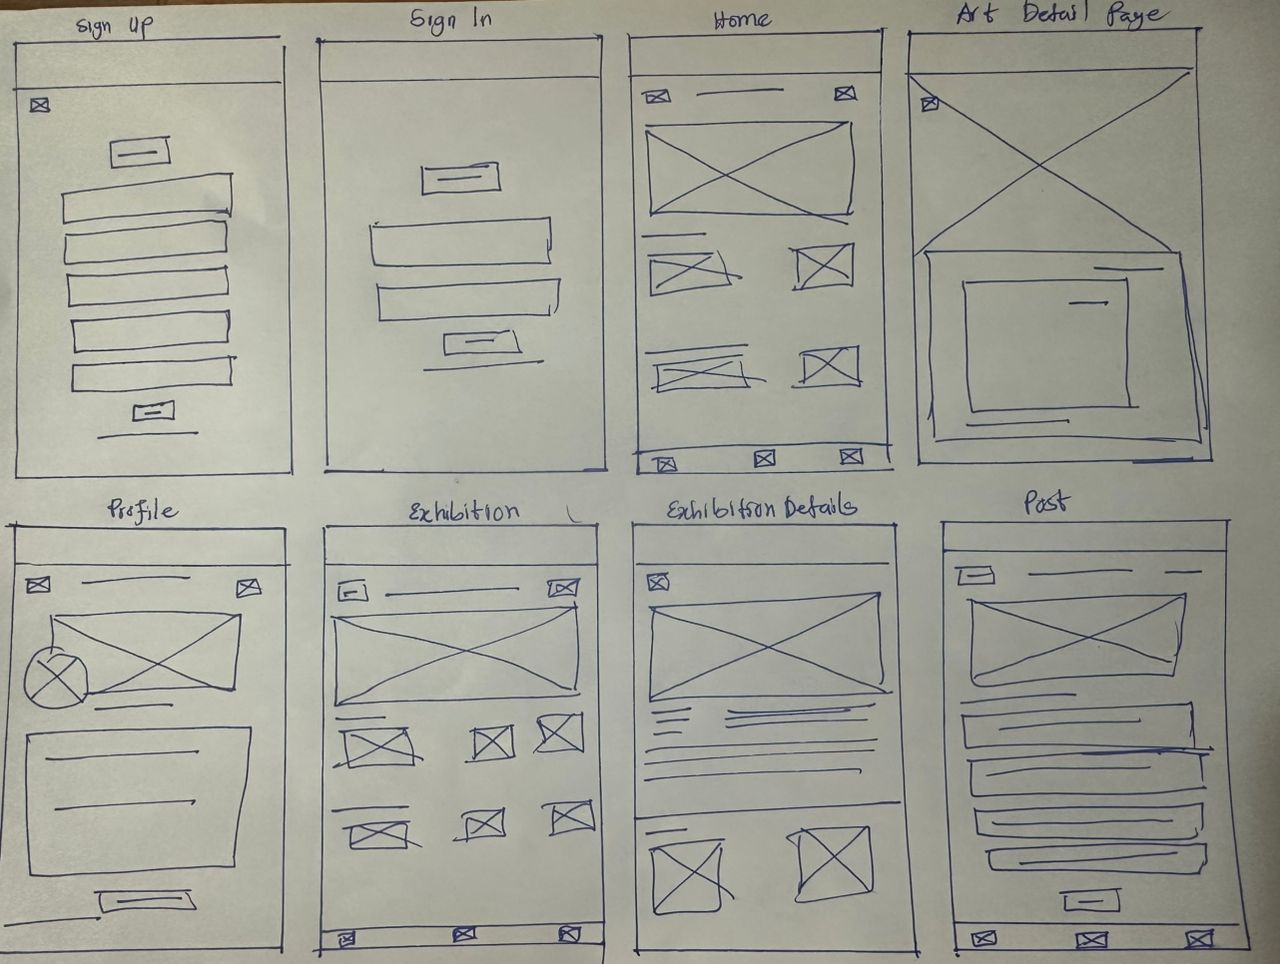 Sign Up
Sign In
Home
Art Detail Page
Profile
Exhibition
Exhibition Details
Post